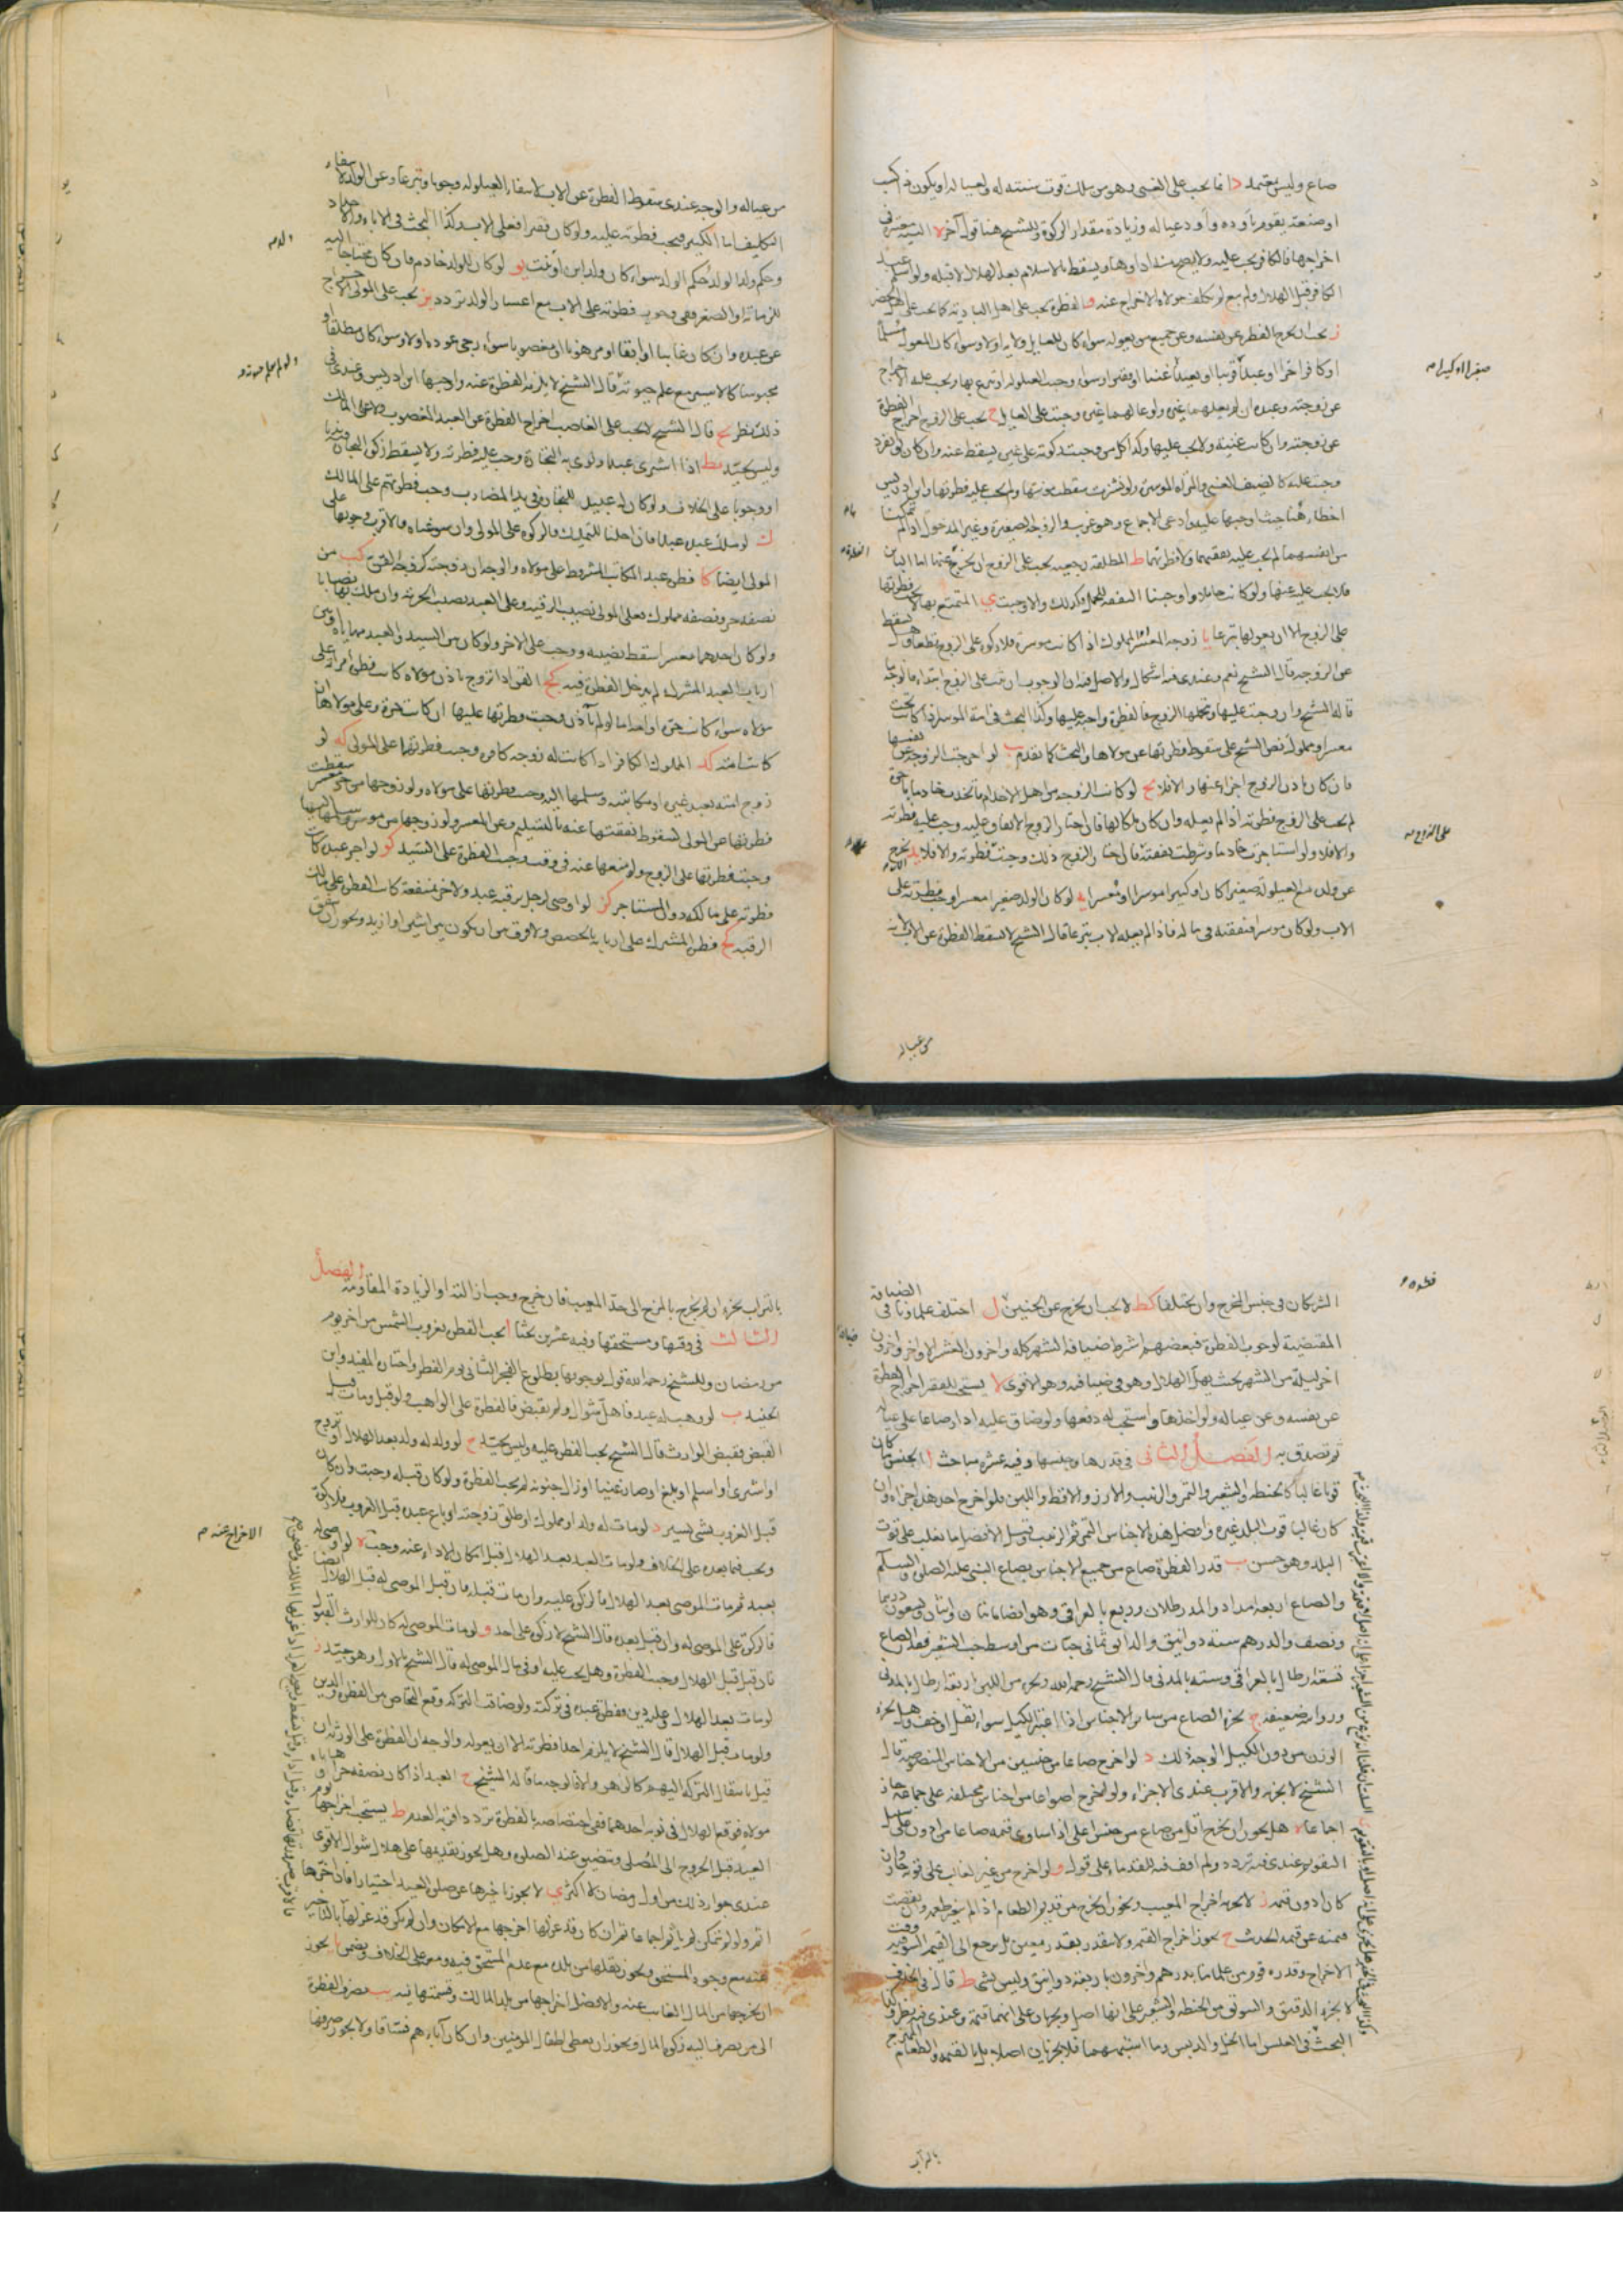 صاع وليس بمعتمد د انما يجب على الغنى وهو من ملك قوت سنته له ولعياله او يكون ذا كسب
او صنعة يقوم باوده واود عياله وزيادة مقدار الزكوة وللشيخ هنا قول آخر ه النية معتبرة في
اخراجها فالكافر يجب عليه ولا يصح منه اداؤها ويسقط بالاسلام بعد الهلال لا قبله ولو اسلم عبد
الكافر قبل الهلال ولم يبع لم يكلف مولاه الاخراج عنه و الفطرة يجب على اهل البادية كما يجب على اهل الحضر
ز يجب ان يخرج الفطرة عن نفسه وعن جميع من يعوله سواء كان للعايل ولاية او لا وسواء كان المعول مسلما
او كافرا حرا او عبدا قريبا او بعيدا غنيا او فقيرا وسواء وجبت العيلولة او تبرع بها ويجب عليه الاخراج
عن زوجته وعبده ان لم يعلهما غيره ولو عالهما غيره وجبت على العايل ح يجب على الزوج اخراج الفطرة
عن زوجته وان كانت غنية ولا يجب عليها وكذا كل من وجبت زكوته على غيره يسقط عنه وان كان لو انفرد
وجبت عليه كالضيف الغنى والمرأة الموسرة ولو نشزت سقطت مؤنتها ولم يجب عليه فطرتها وابن ادريس
اخطاء هنا حيث اوجبها عليه وادعى الاجماع وهو غريب والزوجة الصغيرة وغير المدخول اذا لم تمكنا
من انفسهما لم يجب عليه نفقتهما ولا فطرتهما ط المطلقة رجعية يجب على الزوج ان يخرج عنها اما الباين
فلا يجب عليه عنها ولو كانت حاملا واوجبنا النفقة للحمل فكذلك والا وجبت ى المتمتع بها لا يجب فطرتها
على الزوج الا ان يعولها تبرعا يا زوجة المعسر او المملوك اذا كانت موسرة فلا زكوة على الزوج قطعا وهل يسقط
عن الزوجة قال الشيخ نعم وعندى فيه اشكال والاصل فيه ان الوجوب ان ثبت على الزوج ابتداء فالوجه ما
قاله الشيخ وان وجبت عليها وتحملها الزوج فالفطرة واجبة عليها وكذا البحث في امة الموسر اذا كانت تحت
معسر او مملوك نص الشيخ على سقوط فطرتها عن مولاها والبحث كما تقدم يب لو اخرجت الزوجة عن نفسها
فان كان باذن الزوج اجزأ عنها والا فلا يج لو كانت الزوجة من اهل الاخدام فاتخذت خادما باجرة
لم يجب على الزوج فطرته اذا لم يعله وان كان ملكا لها فان اختار الزوج الانفاق عليه وجب عليه فطرته
والا فلا ولو استاجرت خادما وشرطت نفقته فان اختار الزوج ذلك وجبت فطرته والا فلا يد يخرج الاب
عن ولده مع العيلولة صغيرا كان او كبيرا موسرا او معسرا يه لو كان الولد صغيرا معسرا وجبت فطرته على
الاب ولو كان موسرا فنفقته في ماله فاذا لم يعله الاب تبرعا قال الشيخ لا تسقط الفطرة عن الاب لانه
من عياله
من عياله والوجه عندى سقوط الفطرة عن الاب لانتفاء العيلولة وجوبا وتبرعا وعن الولد لانتفاء
التكليف اما الكبير فيجب فطرته عليه ولو كان فقيرا فعلى الاب وكذا البحث في الاباء والاجداد
وحكم ولد الولد حكم الولد سواء كان ولد ابن او بنت يو لو كان للولد خادم فان كان محتاجا اليه
للزمانة او الصغر ففى وجوب فطرته على الاب مع اعسار الولد تردد يز يجب على المولى الاخراج
عن عبده وان كان غايبا او ابقا او مرهونا او مغصوبا سواء رجى عوده او لا وسواء كان مطلقا او
محبوسا كالاسير مع علم حيوته قال الشيخ لا يلزمه الفطرة عنه واوجبها ابن ادريس وعندى في
ذلك نظر يح قال الشيخ لا يجب على الغاصب اخراج الفطرة عن العبد المغصوب ولا على المالك
وليس بجيد يط اذا اشترى عبدا ونوى به التجارة وجب عليه فطرته ولا يسقط زكوة التجارة ندبا
او وجوبا على الخلاف ولو كان له عبيد للتجارة في يد المضارب وجب فطرتهم على المالك
ك لو ملك عبده عبدا فان احلنا التمليك فالزكوة على المولى وان سوغناه فالاقرب وجوبها على
المولى ايضا كا فطرة عبد المكاتب المشروط على مولاه والوجه ان زوجته كزوجة القن كب من
نصفه حر ونصفه مملوك فعلى المولى نصيب الرقية وعلى العبد نصيب الحرية وان ملك بها نصابا
ولو كان احدهما معسرا سقط نصيبه ووجب على الاخر ولو كان بين السيد والعبد مهاياة او بين
ارباب العبد المشترك لم يدخل الفطرة فيه كج القن اذا تزوج باذن مولاه كانت فطرة امرأته على
مولاه سواء كانت حرة او امة اما لو لم يأذن وجبت فطرتها عليها ان كانت حرة وعلى مولاها ان
كانت امة كد المملوك الكافر اذا كانت له زوجة كافرة وجبت فطرتهما على المولى كه لو
زوج امته بعبد غيره او مكاتبته وسلمها اليه وجب فطرتها على مولاه ولو زوجها من حر معسر سقطت
فطرتها عن المولى لسقوط نفقتها عنه بالتسليم وعن المعسر ولو زوجها من موسر وسلمها اليه
وجبت فطرتها على الزوج ولو منعها عنه في وقت وجبت الفطرة على السيد كو لو اجر عبده كانت
فطرته على مالكه دون المستاجر كز لو اوصى لرجل برقبة عبد ولاخر بمنفعة كانت الفطرة على مالك
الرقبة كح فطرة المشترك على اربابه بالحصص ولا فرق بين ان يكون بين اثنين او ازيد ويجوز ان يتفق
الشريكان في جنس المخرج وان يختلفا كط لا يجب ان يخرج عن الجنين ل اختلف علماؤنا في الضيافة
المقتضية لوجوب الفطرة فبعضهم اشترط ضيافة الشهر كله واخرون العشر الاواخر واخرون
اخر ليلة من الشهر بحيث يهل الهلال وهو في ضيافته وهو الاقوى لا يستحب للفقير اخراج الفطرة
عن نفسه وعن عياله ولو اخذها واستحب له دفعها ولو ضاق عليه ادار صاعا على عياله
ثم تصدق به الفصل الثانى في قدرها وجنسها وفيه عشرة مباحث ا الجنس ما كان
قوتا غالبا كالحنطة والشعير والتمر والزبيب والارز والاقط واللبن فلو اخرج احد هذه اجزاء وان
كان غالب قوت البلد غيره وافضل هذه الاجناس التمر ثم الزبيب وقيل الافضل ما يغلب على قوت
البلد وهو حسن ب قدر الفطرة صاع من جميع الاجناس بصاع النبى عليه الصلوة والسلام
والصاع اربعة امداد والمد رطلان وربع بالعراقى وهو ايضا مائتان واثنان وتسعون درهما
ونصف والدرهم ستة دوانيق والدانق ثمانى حبات من اوسط حب الشعير فقدر الصاع
تسعة ارطال بالعراقى وستة بالمدنى قال الشيخ رحمه الله ويجزى من اللبن اربعة ارطال بالمدنى
وروايته ضعيفة ج يجزى الصاع من ساير الاجناس اذا اعتبر الكيل سواء ثقل او خف وهل يجزى
الوزن من دون الكيل الوجه ذلك د لو اخرج صاعا من جنسين من الاجناس المنصوصة قال
الشيخ لا يجزيه والاقرب عندى الاجزاء ولو اخرج اصواعا من اجناس مختلفة على جماعة جاز
اجماعا ه هل يجوز ان يخرج اقل من صاع من جنس اعلى اذا ساوى قيمة صاعا من ادون على سبيل
التقويم عندى فيه تردد ولم اقف فيه للقدماء على قول و لو اخرج من غير الغالب على قوته جاز وان
كان ادون قيمة ز لا يجزيه اخراج المعيب ويجوز ان يخرج من قديم الطعام اذا لم يتغير طعمه وان نقصت
قيمته عن قيمة الحديث ح يجوز اخراج القيمة ولا يتقدر بقدر معين بل يرجع الى القيم السوقية وقت
الاخراج وقدره قوم من علمائنا بدرهم واخرون باربعة دوانيق وليس بشىء ط قال في الخلاف
لا يجزى الدقيق والسويق من الحنطة والشعير على انها اصل ويجزيان على انهما قيمة وعندى فيه نظر وكذا
البحث في العلس اما الخل والدبس وما اشبههما فلا يجزيان اصلا بل بالقيمة والطعام الممتزج
بالتراب
بالتراب يجزى ان لم يخرج بالمزج الى حد المعيب فان خرج وجب ازالته او الزيادة المقاومة الفصل
الثالث في وقتها ومستحقها وفيه عشرون بحثا ا يجب الفطرة بغروب الشمس من اخر يوم
من رمضان وللشيخ رحمه الله قول بوجوبها بطلوع الفجر الثانى يوم الفطر واختاره المفيد وابن
الجنيد ب لو وهب له عبد فاهل شوال ولم يقبض فالفطرة على الواهب ولو قبل ومات قبل
القبض فقبض الوارث قال الشيخ يجب الفطرة عليه وليس بجيد ج لو ولد له ولد بعد الهلال او تزوج
او اشترى او اسلم او بلغ او صار غنيا او زال جنونه لم يجب الفطرة ولو كان قبله وجبت وان كان
قبل الغروب بشىء يسير د لو مات له ولد او مملوك او طلق زوجته او باع عبده قبل الغروب فلا زكوة
ويجب فيما بعده على الخلاف ولو مات العبد بعد الهلال قبل امكان الاداء عنه وجبت ه لو اوصى له
بعبد ثم مات الموصى بعد الهلال فالزكوة عليه وان مات قبله فان قبل الموصى له قبل الهلال
فالزكوة على الموصى له وان قبل بعده قال الشيخ لا زكوة على احد و لو مات الموصى له كان للوارث القبول
فان قبل قبل الهلال وجبت الفطرة وهل يجب عليه او في مال الموصى له قال الشيخ بالاول وهو جيد ز
لو مات بعد الهلال وعليه دين ففطرة عبده في تركته ولو ضاقت التركة وقع التحاص بين الفطرة والدين
ولو مات قبل الهلال قال الشيخ لا يلزم احدا فطرته الا ان يعوله والوجه ان الفطرة على الورثة ان
قيل بانتقال التركة اليهم كالرهن والا فالوجه ما قاله الشيخ ح العبد اذا كان نصفه حرا وهاياه
مولاه فوقع الهلال في نوبة احدهما ففى اختصاصه بالفطرة تردد اقربه العدم ط يستحب اخراجها يوم
العيد قبل الخروج الى المصلى ويتضيق عند الصلوة وهل يجوز تقديمها على هلال شوال الاقوى
عندى جواز ذلك من اول رمضان لا اكثر ى لا يجوز تاخيرها عن صلوة العيد اختيارا فان اخرها
اثم ولو لم يتمكن لم ياثم اجماعا ثم ان كان قد عزلها اخرجها مع الامكان وان لم يكن قد عزلها
عنه مع وجود المستحق ويجوز نقلها من بلده مع عدم المستحق فيه ومعه على الخلاف ويضمن يا يجوز
ان يخرجها من المال الغائب عنه والافضل اخراجها من بلد المالك وقسمتها فيه يب مصرف الفطرة
الى من يصرف اليه زكوة المال ويجوز ان يعطى اطفال المومنين وان كان آباءهم فساقا ولا يجوز صرفها
الاخراج عنه م